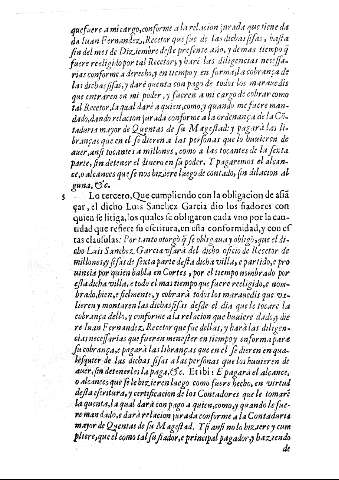 que fuere a mi cargo, conforme a la relacion jurada que tiene da
da Iuan Fernandez, Recetor que fue de las dichas sisas, hasta
fin del mes de Diziembre deste presente año, y demas tiempo q̃
fuere reeligido por tal Recetor, y harè las diligencias necessa-
rias conforme a derecho, y en tiempo y en forma, la cobrança de
las dichas sisas, y darè cuenta con pago de todos los marauedis
que entraren en mi poder, y fueren a mi cargo de cobrar como
tal Recetor, la qual darè a quien, como, y quando me fuere man-
dado, dando relacion jurada conforme a la ordenança de la Cõ-
taduria mayor de Quentas de su Magestad: y pagarè las li-
branças que en el se dieren a las personas que lo huuieren de
auer, assi tocantes a millones, como a las tocantes de la sexta
parte, sin detener el dinero en su poder. Y pagaremos el alcan-
ce, o alcances que se nos hiziere luego de contado, sin dilacion al
guna, &c.
5 Lo tercero, Que cumpliendo con la obligacion de afiã
çar, el dicho Luis Sanchez Garcia dio los fiadores con
quien se litiga, los quales se obligaron cada vno por la cau-
tidad que refiere su escritura, en esta conformidad, y con es-
tas clausulas: Por tanto otorgò q̃ se obligaua y obligò, que el di-
cho Luis Sanchez Garcia vsarà del dicho oficio de Recetor de
millones, y sisas de sexta parte desta dicha villa, e partido, e pro
uincia por quien habla en Cortes, por el tiempo nombrado por
esta dicha villa, e todo el mas tiempo que fuere reeligido, e nom-
brado, bien, e fielmente, y cobrarà todos los marauedis que va-
lieren y montaren las dichas sisas desde el dia que le tocare la
cobrança dello, y conforme a la relacion que huuiere dado, y die
re Iuan Fernandez, Recetor que fue dellas, y harà las diligen-
cias necessarias que fueren menester en tiempo y en forma para
su cobrança, e pagarà las librançās que en el se dieren en qua-
lesquier de las dichas sisas a las personas que los huuieren de
auer, sin detenerles la paga, &c. Et ibi: E pagarà el alcance,
o alcances que se le hizieren luego como fuere hecho, en virtud
desta escritura, y certificacion de los Contadores que le tomarè
la quenta, la qual darà con pago a quien, como, y quando le fue-
re mandado, e darà relacion jurada conforme a la Contaduria
mayor de Quentas de su Magestad. Y si ansi no lo hiziere y cum
pliere, que el como tal su fiador, e principal pagador, y haziendo
de